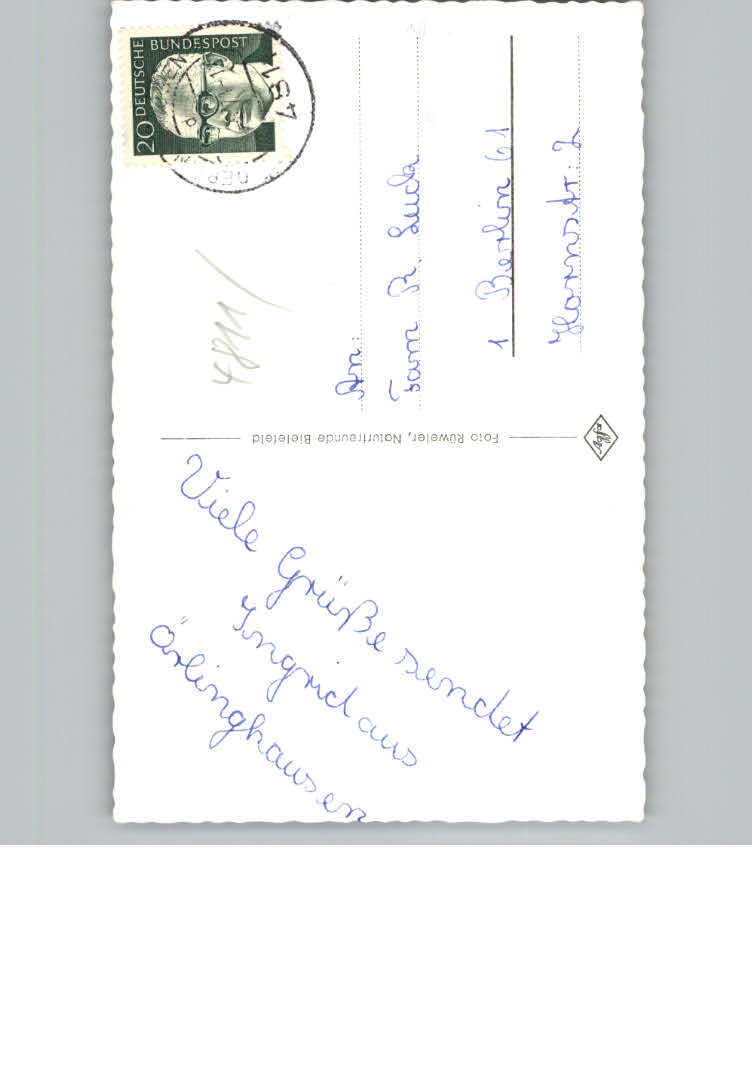 Viele Grüße sendet
Ingrid aus
Örlinghausen
Foto Rüweler, Naturfreunde Bielefeld
Agfa
DEUTSCHE BUNDESPOST
20
4811
An:
Fam. R. Luck
1 Berlin 61
Hornstr. 2